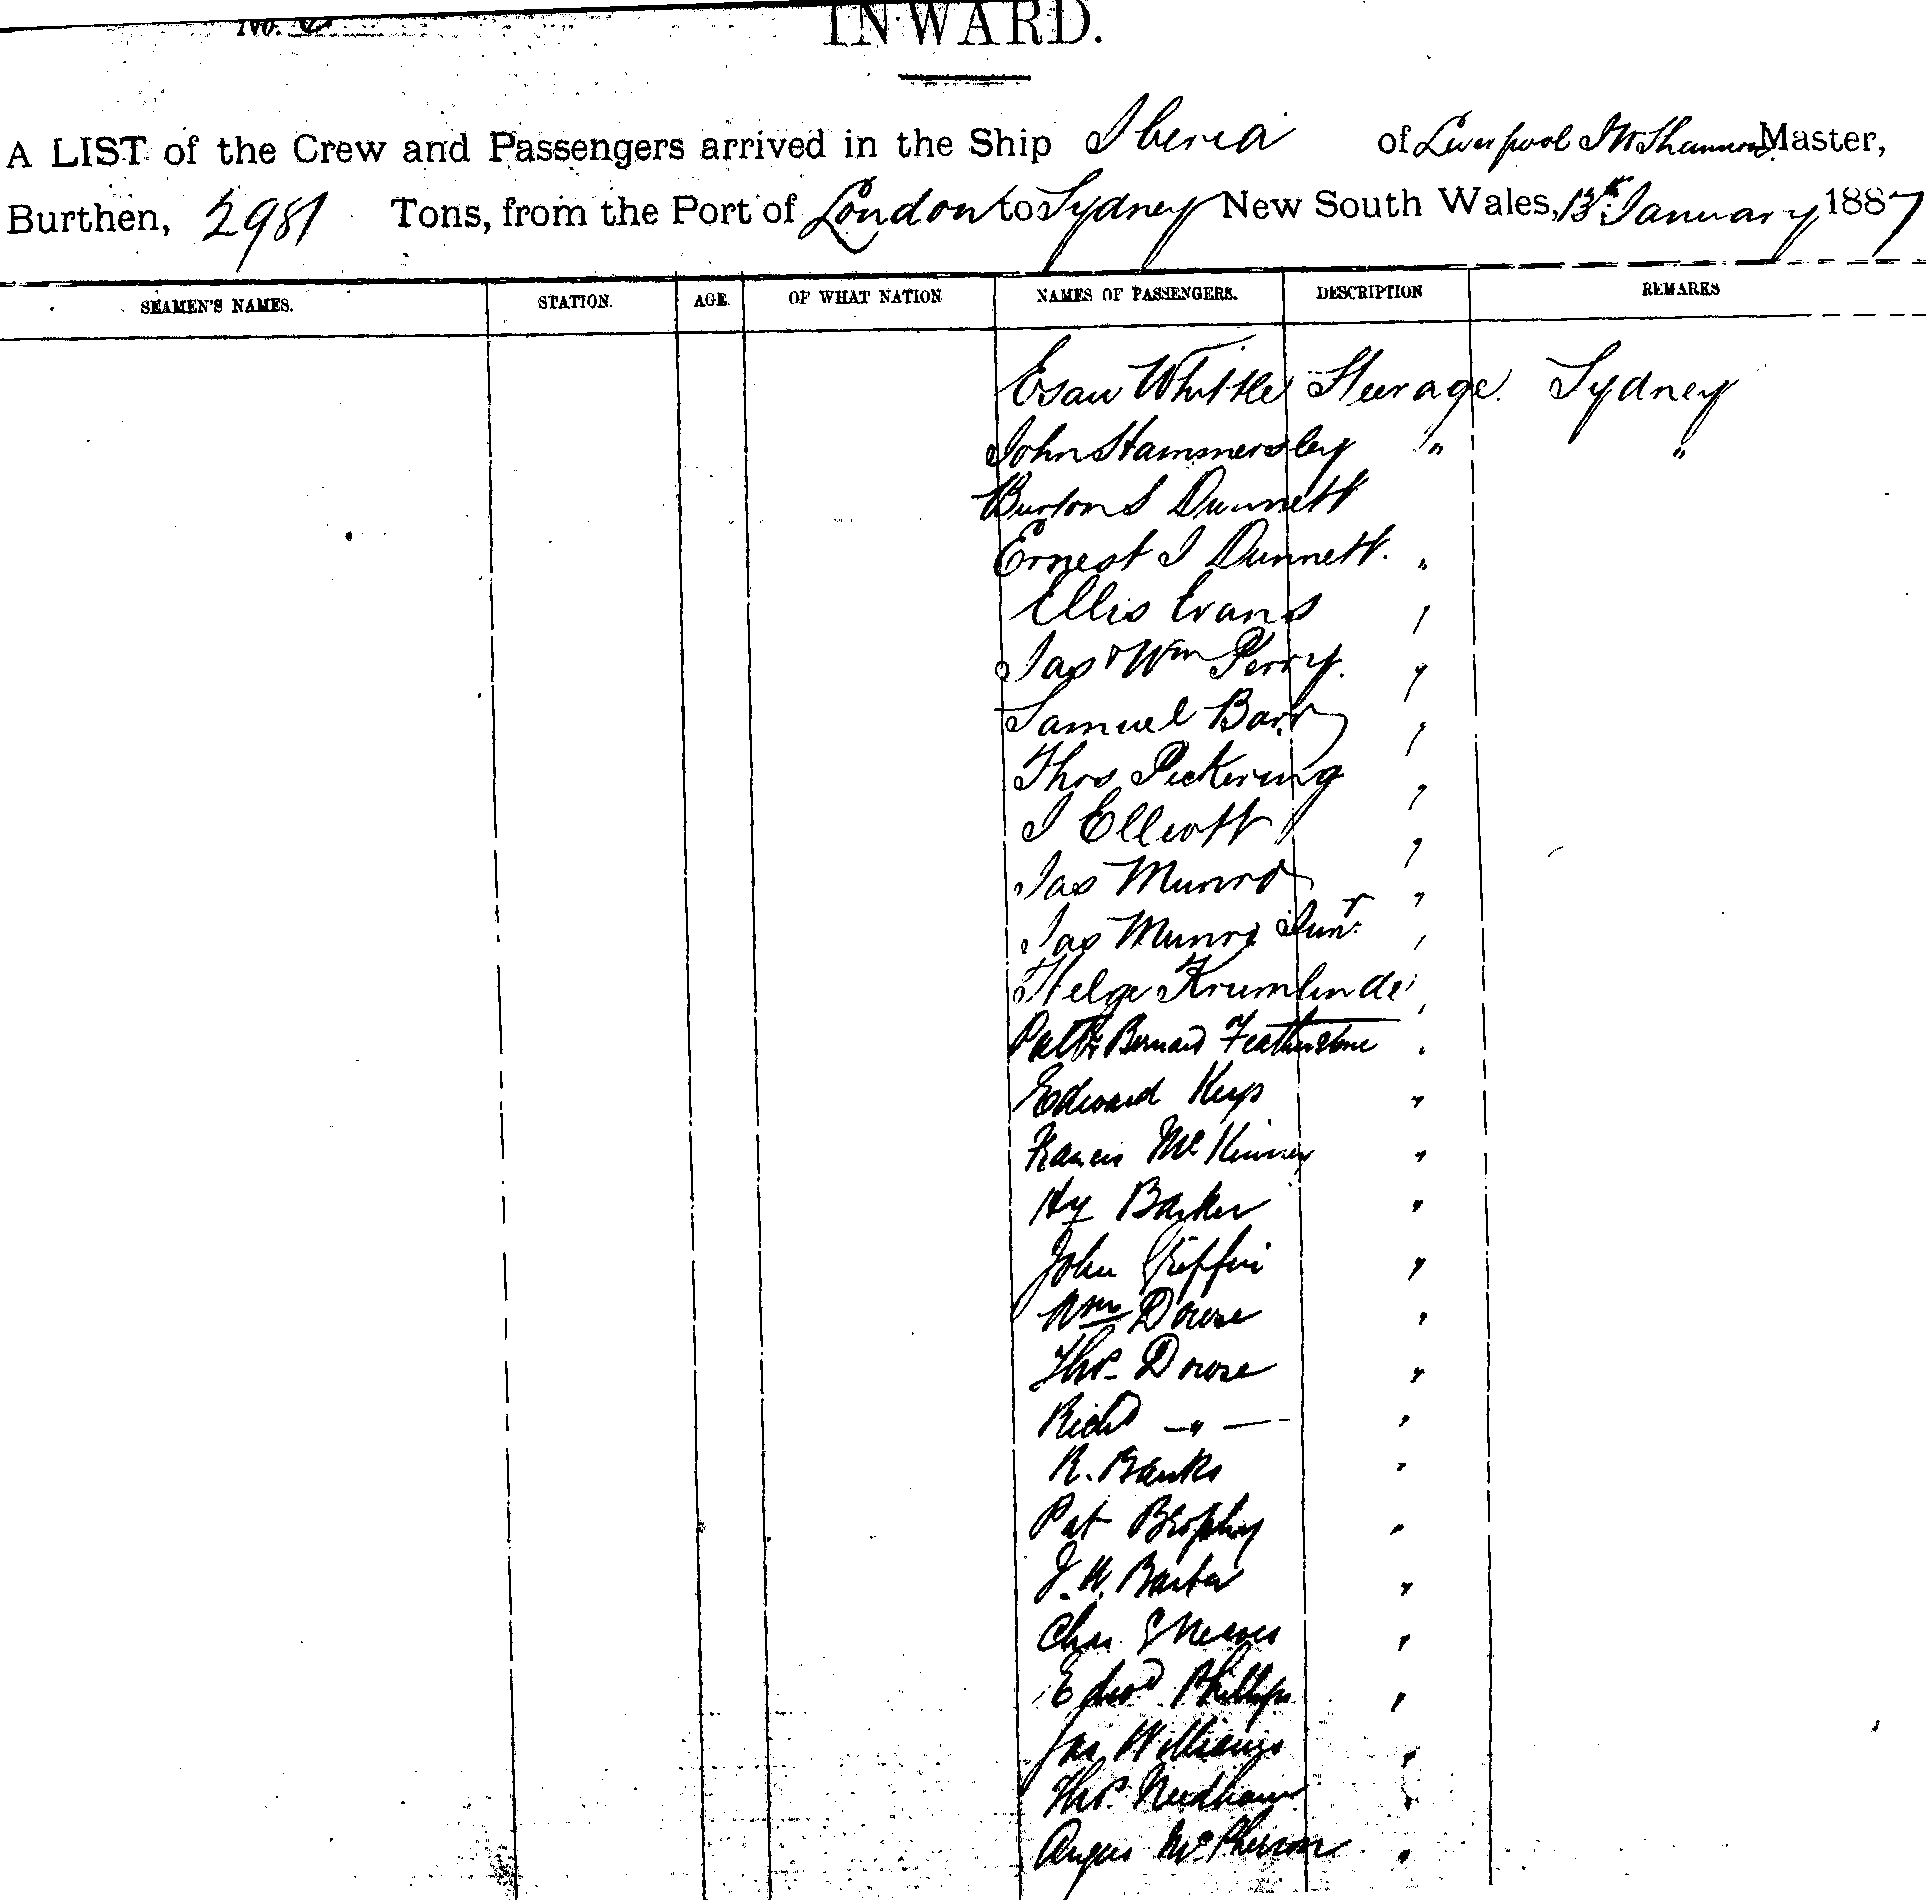 No. 6
INWARD.
A LIST of the Crew and Passengers arrived in the Ship Iberia of Liverpool J W Shannon Master,
Burthen, 2981 Tons, from the Port of London to Sydney New South Wales, 13th January 1887
SEAMEN'S NAMES. STATION. AGE. OF WHAT NATION NAMES OF PASSENGERS. DESCRIPTION REMARKS
Esau Whittle Steerage. Sydney
John Hammersley " "
Burton S Dunnett
Ernest J Dunnett. "
Ellis Evans "
Jas Wm Perry. "
Samuel Barr "
Thos Pickering "
J Elliott "
Jas Munro "
Jas Munro Junr. "
Helge Krumlinde "
Patk Bernard Featherstone "
Edward Keys "
Francis McKinney "
Hy Barker "
John Griffin "
Wm Dowse "
Thos Dowse "
Richd — " — "
R. Banks "
Pat Brophy "
J. W. Baxter "
Chas Neaves "
Edwd Phillips "
Jas Williams "
Thos Needham "
Angus McPherson "